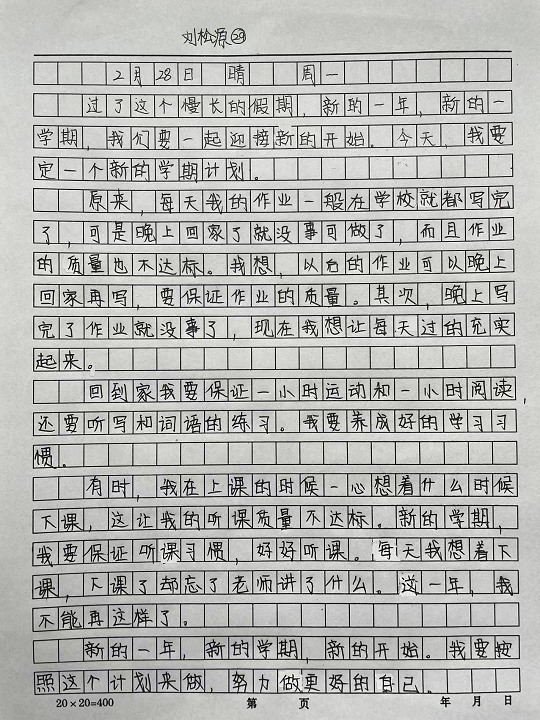 刘松源㉙
2月28日 晴 周一
过了这个慢长的假期,新的一年,新的一
学期,我们要一起迎接新的开始。今天,我要
定一个新的学期计划。
原来,每天我的作业一般在学校就都写完
了,可是晚上回家了就没事可做了,而且作业
的质量也不达标。我想,以后的作业可以晚上
回家再写,要保证作业的质量。其次,晚上写
完了作业就没事了,现在我想让每天过的充实
起来。
回到家我要保证一小时运动和一小时阅读,
还要听写和词语的练习。我要养成好的学习习
惯。
有时,我在上课的时候一心想着什么时候
下课,这让我的听课质量不达标。新的学期,
我要保证听课习惯,好好听课。每天我想着下
课,下课了却忘了老师讲了什么。这一年,我
不能再这样了。
新的一年,新的学期,新的开始。我要按
照这个计划来做,努力做更好的自己。
20×20=400 第 页 年 月 日